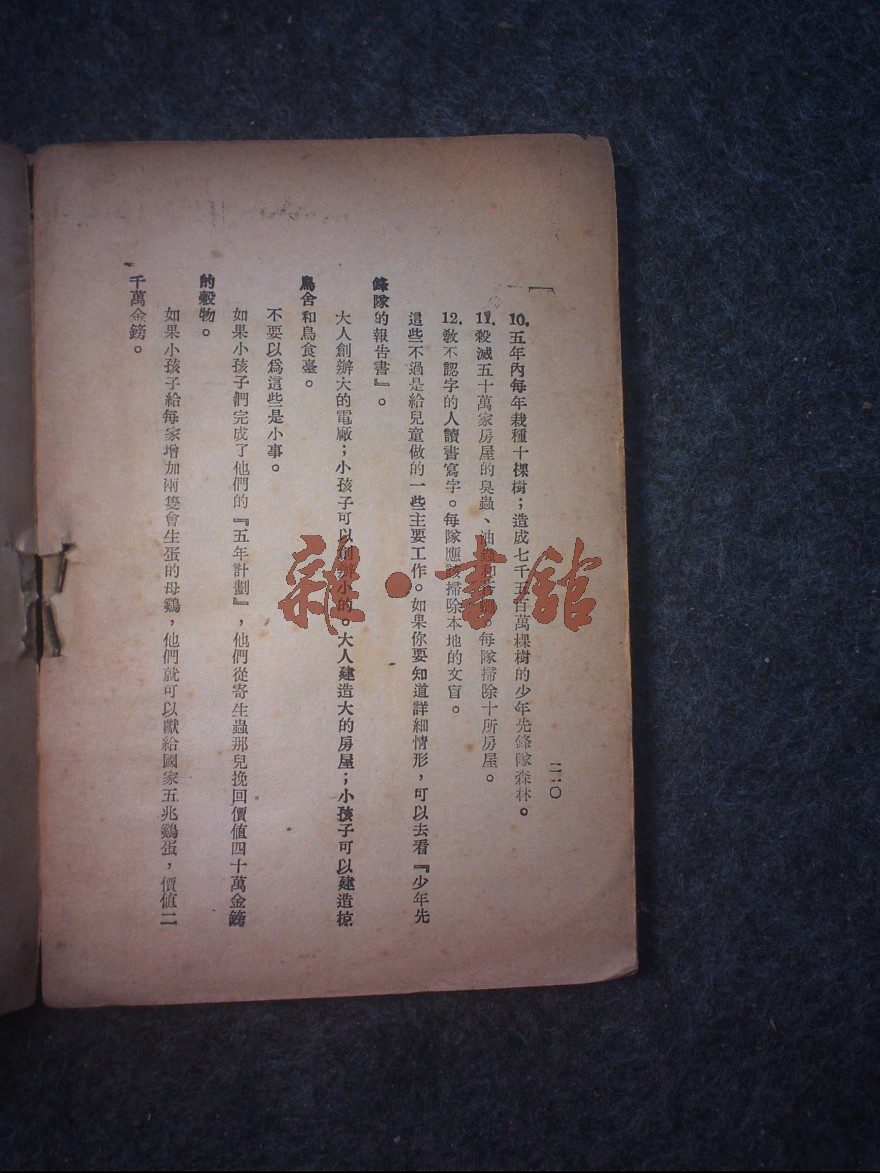 二一〇
10.五年內每年栽種十棵樹；造成七千五百萬棵樹的少年先鋒隊森林。
11.殺滅五十萬家房屋的臭蟲、油蟲和。每隊掃除十所房屋。
12.敎不認字的人讀書寫字。每隊應該掃除本地的文盲。
這些不過是給兒童做的一些主要工作。如果你要知道詳細情形，可以去看『少年先
鋒隊的報告書』。
大人創辦大的電廠；小孩子可以創辦小的。大人建造大的房屋；小孩子可以建造椋
鳥舍和鳥食臺。
不要以爲這些是小事。
如果小孩子們完成了他們的『五年計劃』，他們從寄生蟲那兒挽回價值四十萬金鎊
的穀物。
如果小孩子給每家增加兩隻會生蛋的母鷄，他們就可以獻給國家五兆鷄蛋，價值二
千萬金鎊。
雜·書館